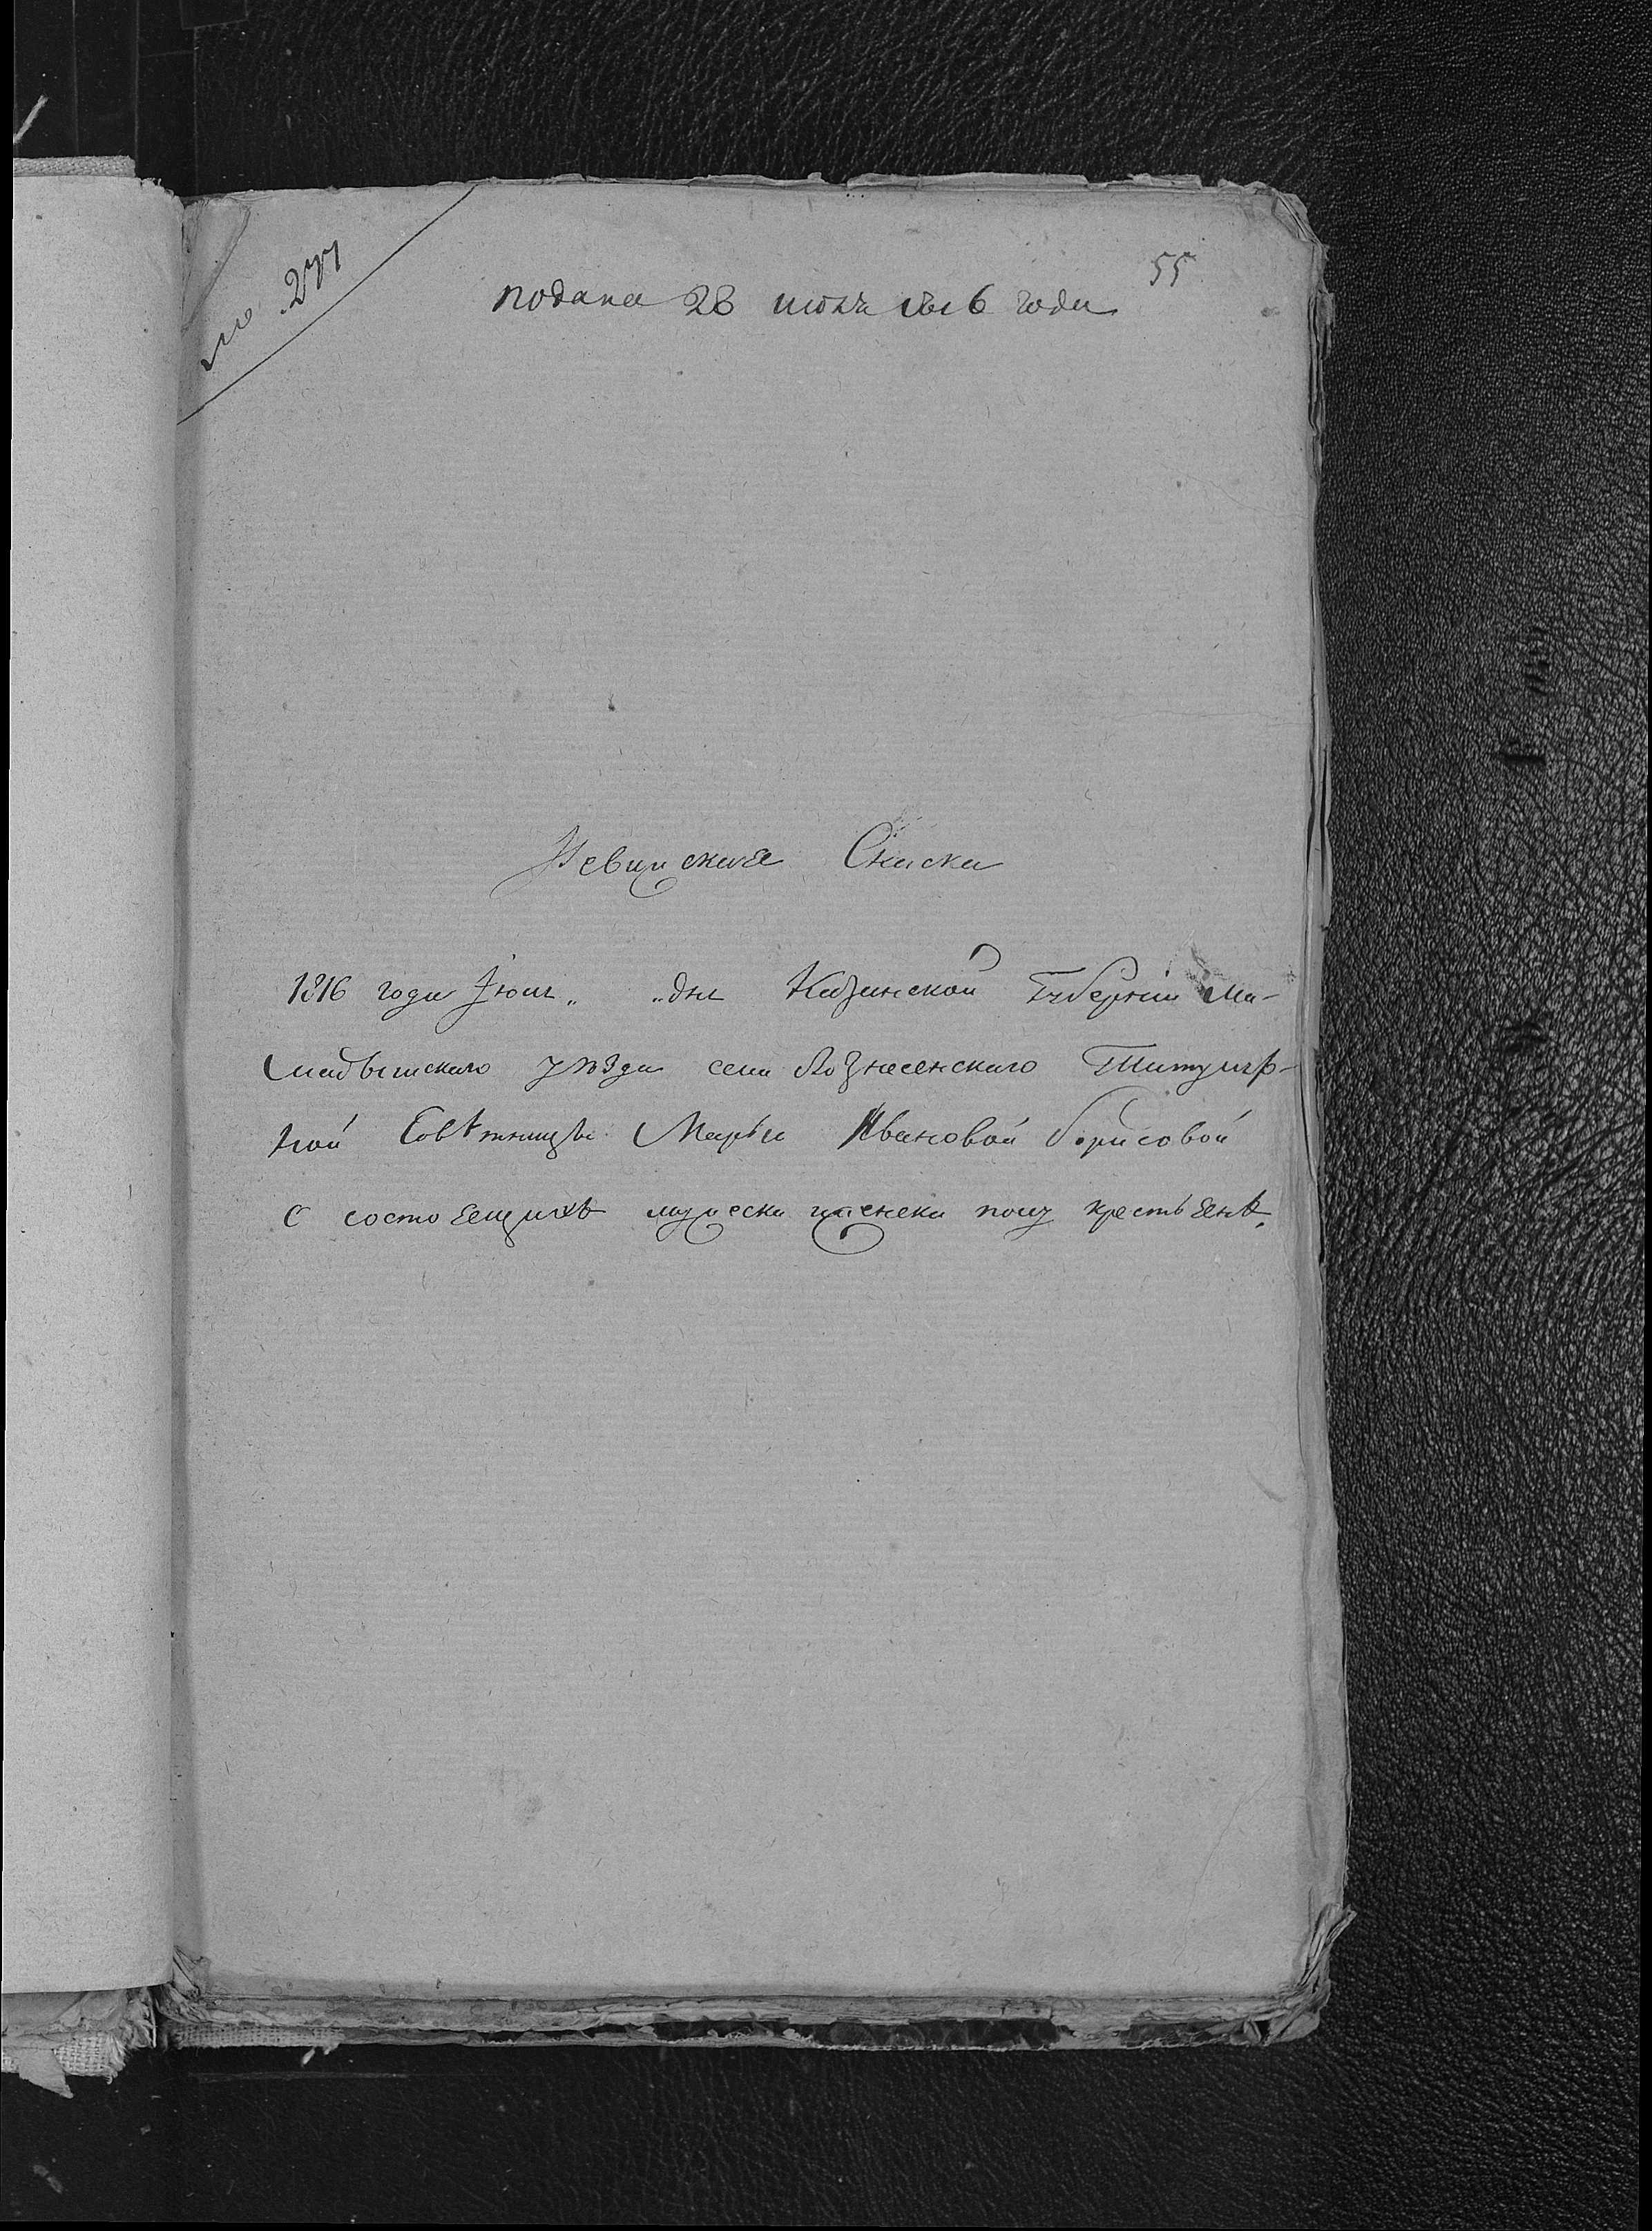 № 271
55
подана 28 июня 1816 года
Ревижская Скаска
1816 года Iюня „ „ дня Казанской Губернiи Ма-
мадышскаго уѣзда села Вознесенскаго Титуляр-
ной Совѣтницы Марьи Ивановой Борисовой
О состоящихъ мужеска и женска полу крестьянъ